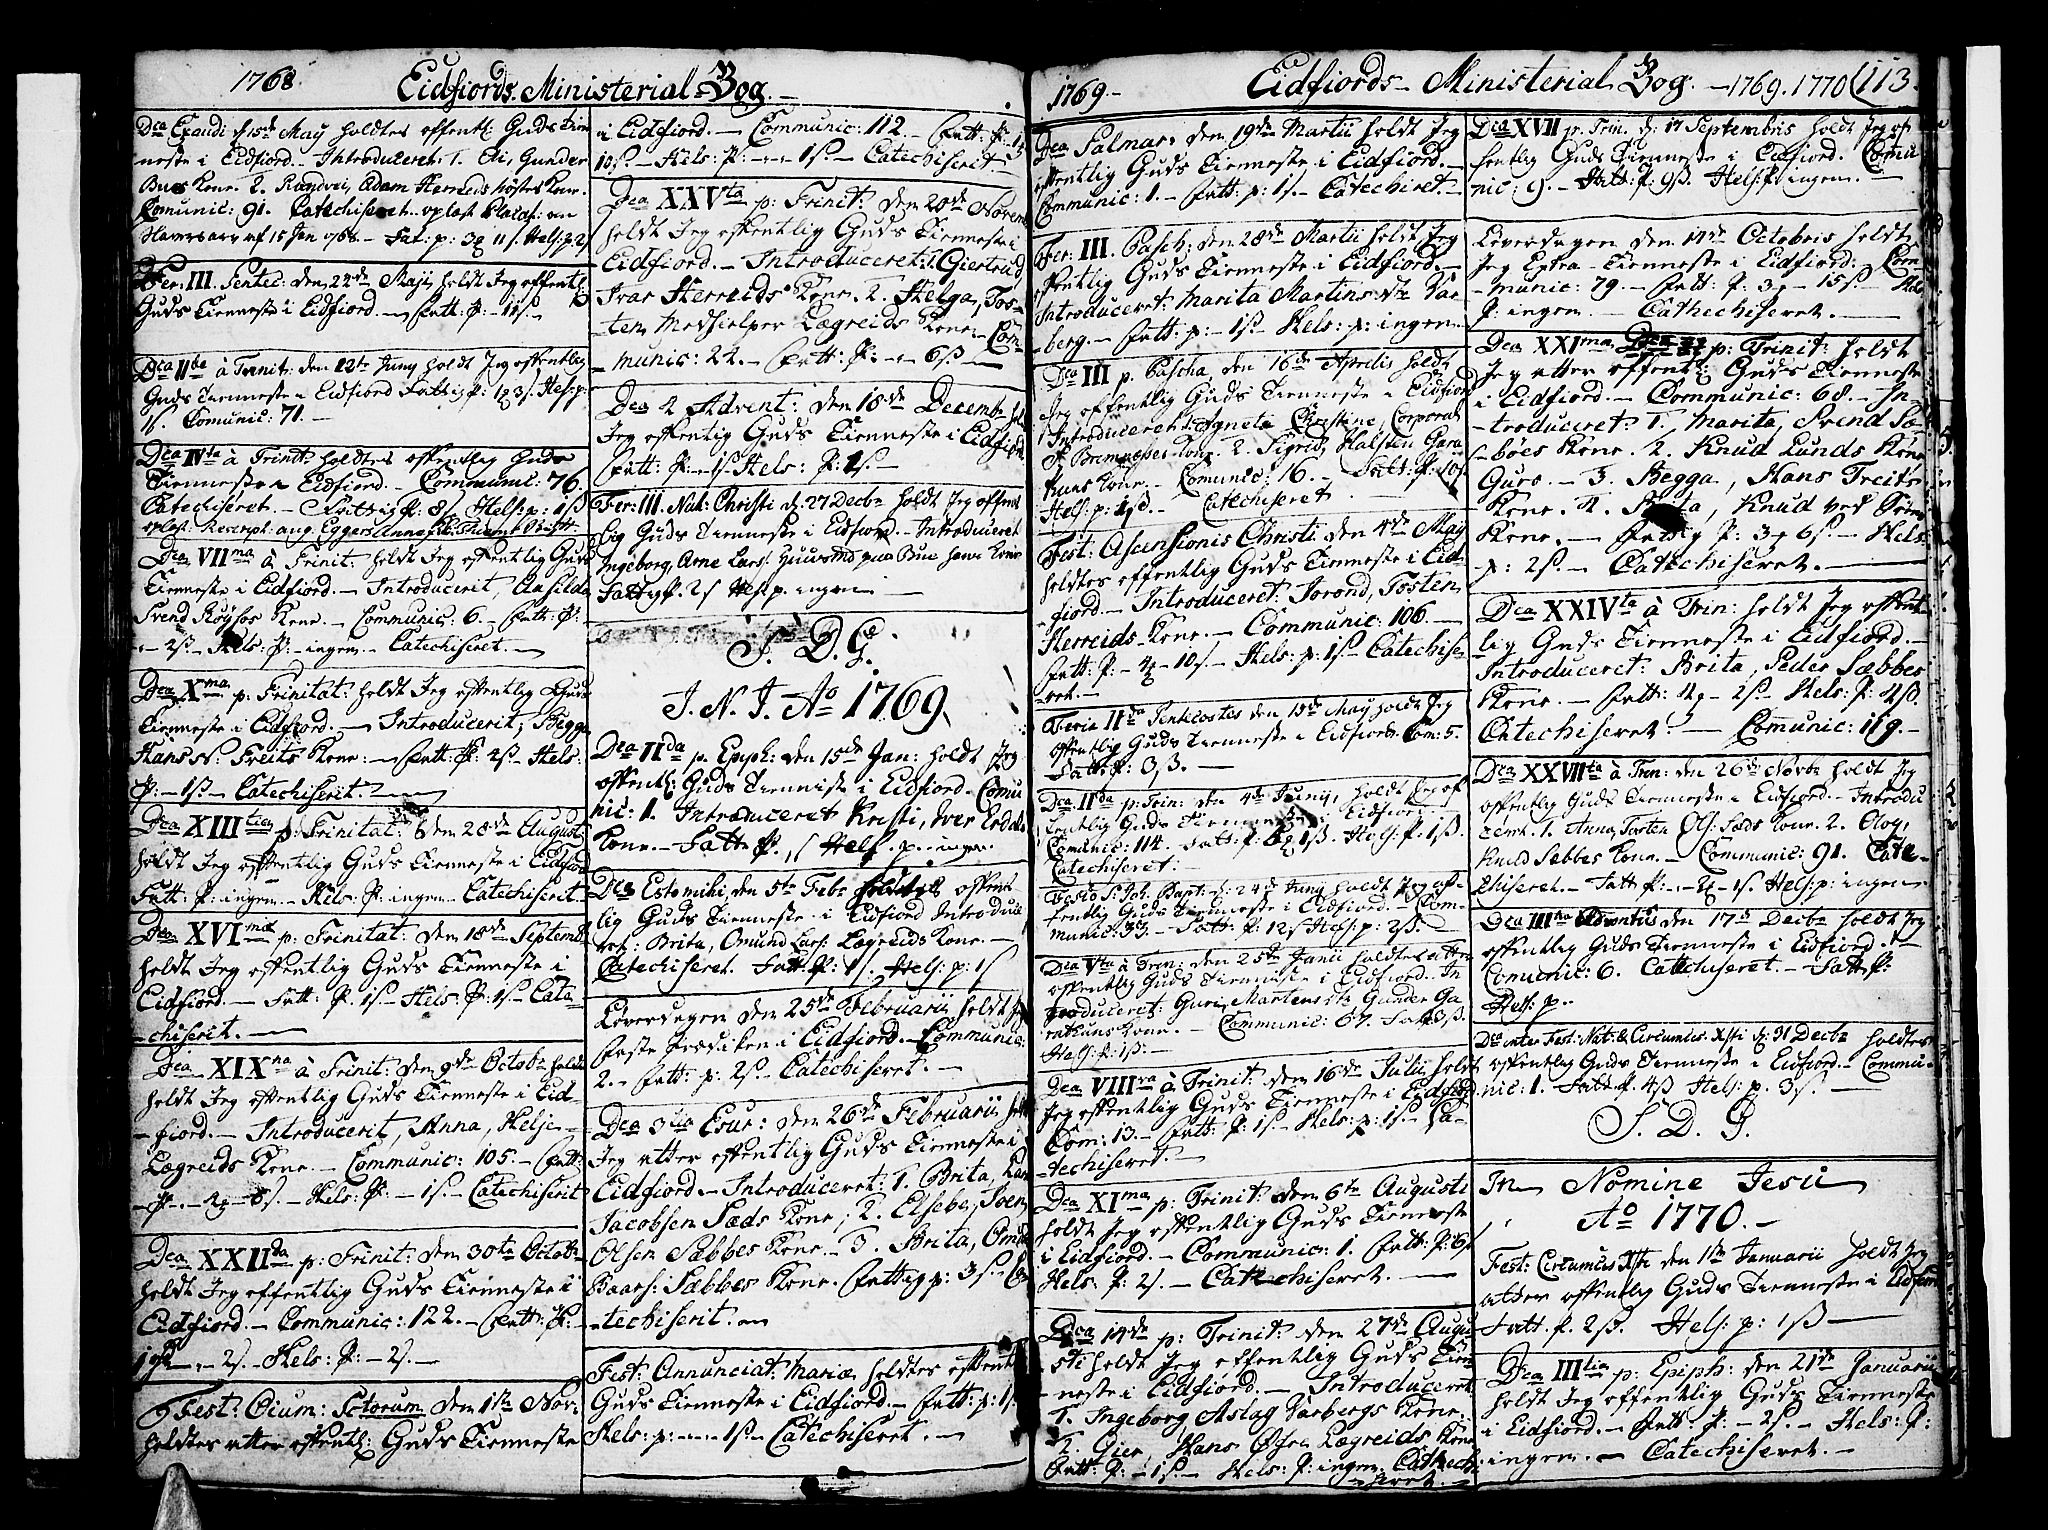 1768
Eidfiords Ministerial-Bog.
Dca Exaudi d. 15de May holdtes offentl: Guds Tien
neste i Eidfiord. Introduceret: 1. Eli, Gunder
Bues Kone. 2. Randvei, Adam Herreids Kone.
Comunic: 91. Catechiseret. oplæst Placat: om
af 15 Jan 1768. Fat: p: 3 11 s. Hels: p. 2 s
Fer: III. Pentec: den 24de Maji, holdt Jeg offentl:
Guds Tienneste i Eidfiord. Fatt: P: 11 s.
Dca IIde à Trinit: den 12te Juny holdt Jeg offentlig
Guds Tienneste i Eidfiord Fattis P: 1 3 s. Hels: p:
1 s. Comunic: 71.
Dca IVta à Trinit: holdtes offentlig Guds
Tienneste i Eidfiord. Communic: 76.
Catechiseret. Fattis P. 8 s. Hels: p: 1 ß
oplæst Rescript. ang.
Dca VIIma à Trinit: holdt Jeg offentlig Guds
Tienneste i Eidfiord. Introducerit, Aasilda
Svend Røysos Kone. Communic: 6. Fatt: P:
2 ß. Hels: P: ingen. Catechiseret.
Dca Xma p: Trinitat: holdt Jeg offentlig Guds
Tienneste i Eidfiord. Introducerit, Bigga
Hans N: Treits Kone. Fatt: P: 2 ß. Hels:
P: 1 ß. Catechiserit.
Dca XIIItia p: Trinitat: den 28de August
holdt Jeg offentlig Guds Tienneste i Eidfiord
Fatt: P: ingen. Hels: P: ingen. Catechiseret.
Dca XVIma p: Trinitat: den 18de Septemb:
holdt Jeg offentlig Guds Tienneste i
Eidfiord. Fatt: P: 1 ß. Hels: P: 1 ß. Cate-
chiserit.
Dca XIXna à Trinit: den 9de Octobr holdt
holdt Jeg offentlig Guds Tienneste i Eid-
fiord. Introducerit, Anna, Helje
Lægreids Kone. Communic: 105. Fatt:
P: 8 s. Hels: P: 1 ß. Catechiserit
Dca XXIIda p: Trinit: den 30te Octobr
holdt Jeg offentlig Guds Tienneste i
Eidfiord. Communic: 122. Fatt: P:
2 s. Hels: P: 2 s.
Fest: Oium: Sctorum den 1te Nov:
holdtes atter offentl: Guds Tienneste
i Eidfiord. Communic: 112. Fatt: P:
10 s. Hels: P: 1 ß. Catechiserit.
Dca XXVta p: Trinit: den 20de Novem
holdt Jeg offentlig Guds Tienneste i
Eidfiord. Introduceret: 1. Giertrud
Ivar Herreids Kone. 2. Helga, Tos-
ten, Medhielper Lægreids Kone. Com-
munic: 22. Fatt: P: 6 ß
Dca 4 Advent: den 18de Decembr holdt
Jeg offentlig Guds Tienneste i Eidfiord
Fatt: P: 1 s Hels: P: 1 s.
Fer: III. Nat: Christi d. 27 Decbr holdt Jeg offent
lig Guds Tienneste i Eidfiord. Introduceret
Ingeborg, Arne Lars: Huusmd paa Bue hans Kone
Fattig P. 2 s Hels p. ingen
S. D. G.
I. N. J. Ao 1769.
Dca IIda p. Epiph: den 15de Jan: holdt Jeg
offentl: Guds Tienniste i Eidfiord. Comu
nic: 1. Introduceret Kristi, Iver Erdals
Kone. Fatt P. 1 s Hels. p. ingen.
Dca Estomihi, den 5te Febr holdtes offent
lig Guds Tienneste i Eidfiord Introduce
ret: Brita, Omund Lars: Lægreids Kone.
Catechiseret. Fatt: P: 1 s. Hels: p: 1 s
Løverdagen den 25de Februarii holdt Jeg
Faste Prædiken i Eidfiord. Communic:
2. Fatt: p: 2 s. Catechiseret.
Dca 3tia Esur: den 26de Februarii holdt
Jeg atter offentlig Guds Tienneste i
Eidfiord. Introduceret: 1. Brita, Lars
Jacobsen Sæds Kone, 2. Elseba, Sven
Olsen Sæbbes Kone. 3. Brita, Omund
Baars: Sæbbes Kone. Fattig p: 3 s. Ca
techiserit.
Fest: Annunciat: Mariæ holdtes offentl:
Guds Tienneste i Eidfiord. Fatt: p: 1 s.
Hels: p: 1 ß. Catechiseret.
1769
Eidfiords Ministerial Bog.
1769. 1770 (113.
Dca Palmar: den 19de Martii holdt Jeg
offentlig Guds Tienneste i Eidfiord.
Communic: 1. Fatt: p: 1 s. Catechiret.
Fer: III. Pasch: den 28de Martii holdt Jeg
offentlig Guds Tienneste i Eidfiord.
Introduceret: Marita Martins Var-
berg. Fatt: p: 1 ß. Hels: p: ingen
Dca III p. Pascha, den 16de Aprilis holdt
Jeg offentlig Guds Tienneste i Eidfiord
Introduceret: 1. Agneta Christine, Corporal
Bremneses Kone. 2. Sigrid, Halsten Gara
thuns Kone. Comunic: 16. Fatt: P. 10 s
Hels: p: 1 ß. Catechiseret
Fest: Ascensionis Christi den 4de May
holdtes offentlig Guds Tienneste i Eid-
fiord. Introduceret: Torond, Tosten
Herreids Kone. Communic: 106.
Fatt: P: 4 10 s. Hels: p: 1 s. Catechise-
ret.
Feria IIda Pentecostes den 15de May holdt Jeg
offentlig Guds Tienneste i Eidfiord. Com: 5.
Fatt: P: 3 ß.
Dca IIda p: Trin: den 4de Juny, holdt Jeg of
fentlig Guds Tienneste i Eidfiord.
Comunic: 114. Fatt: P: 1 ß. Hels: P. 1 ß.
Catechiseret.
Festo S: Joh. Bapt: d. 24de Junij holdt Jeg of-
fentlig Guds Tienneste i Eidfiord. Com-
munic: 33. Fatt: P: 12 s Hels: p: 2 ß.
Dca Vta à Trin: den 25de Junii holdtes atter
offentlig Guds Tienneste i Eidfiord. In
troduceret: Guri, Gunder Ga
ratuns Kone. Communic: 67. Fatt 3 ß.
Hels: P: 1 ß.
Dca VIIIva à Trinit: den 16de Julii holdt
Jeg offentlig Guds Tienneste i Eidfiord
Com: 13. Fatt: P: 1 s. Hels: p: 1 s. Ca-
techiseret.
Dca XIma p: Trinit: den 6te Augusti
holdt Jeg offentlig Guds Tienneste
i Eidfiord. Communic: 1. Fatt: P: 6 s
Hels: P: 2 s. Catechiseret.
Dca 14de p: Trinit: den 27de Augu
sti holdt Jeg offentlig Guds Tien-
neste i Eidfiord. Introduceret
1. Ingeborg Aslag Varbergs Kone.
2. Gier, Hans Øfre Lægreids Kone
Fatt: P: 1 s. Hels: P: ingen. Catechi
seret.
Dca XVII p. Trin. d. 17 Septembris holdt Jeg of-
fentlig Guds Tienneste i Eidfiord. Comu
nic: 9. Fatt: P: 9 ß. Hels: P: ingen.
Løverdagen den 14de Octobris holdt
Jeg Extra-Tienneste i Eidfiord. Com-
munic: 79. Fatt: P: 3 15 s. Hels
P: ingen. Catechiseret.
Dca XXIma p: Trinit: holdt
Jeg atter offentl: Guds Tienneste
i Eidfiord. Communic: 68. In-
troduceret: 1. Marita, Svend Sæ-
bøes Kone. 2. Knud Lunds Kone
Guro. 3. Begga, Hans Treits
Kone. 4. Knud ved
Kone. Fattig P: 3 6 s. Hels:
p: 2 s. Catechiseret.
Dca XXIVta à Trin: holdt Jeg offent
lig Guds Tienneste i Eidfiord.
Introduceret: Brita, Peder Sæbbes
Kone. Fatt: 4 2 s. Hels: P: 4 ß.
Catechiseret. Communic: 119.
Dca XXVIIta à Trin: den 26de Novbr holdt Jeg
offentlig Guds Tienneste i Eidfiord. Introdu
ceret. 1. Anna, Tosten Ols: Sæds Kone. 2.
Knud Sæbbes Kone. Communic: 91. Cate-
chiseret. Fatt P: 2 1 s. Hels: p: ingen
Dca IIItia Adventus den 17de Decbr holdt Jeg
offentlig Guds Tienneste i Eidfiord.
Comunic: 6. Catechiseret. Fatt P:
Hels: p.
Dca inter Fest: Nat: & Circumcis: Xsti d. 31 Decbr holdtes
offentlig Guds Tienneste i Eidfiord. Commu-
nic: 1. Fatt. P. 4 ß Hels: p. 3 s.
S. D. G.
In Nomine Jesu
Ao 1770.
Fest: Circumcis Xsti den 1te Januarii holdt Jeg
atter offentlig Guds Tienneste i Eidfiord
Fatt. P. 2 ß. Hels: p: 1 ß
Dca IIItia p: Epiph: den 21de Januarii
holdt Jeg offentlig Guds Tienneste
i Eidfiord. Fatt: P: 2 s. Hels: P:
ingen. Catechiseret.